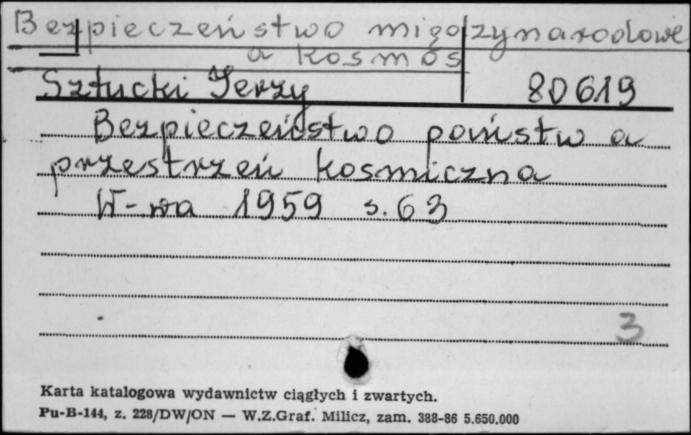 Bezpieczeństwo międzynarodowe
a kosmos
Sztucki Jerzy 80619
Bezpieczeństwo państw a
przestrzeń kosmiczna
W-wa 1959 s. 63
3
Karta katalogowa wydawnictw ciągłych i zwartych.
Pu-B-144, z. 228/DW/ON — W.Z.Graf. Milicz, zam. 388-86 5.650.000